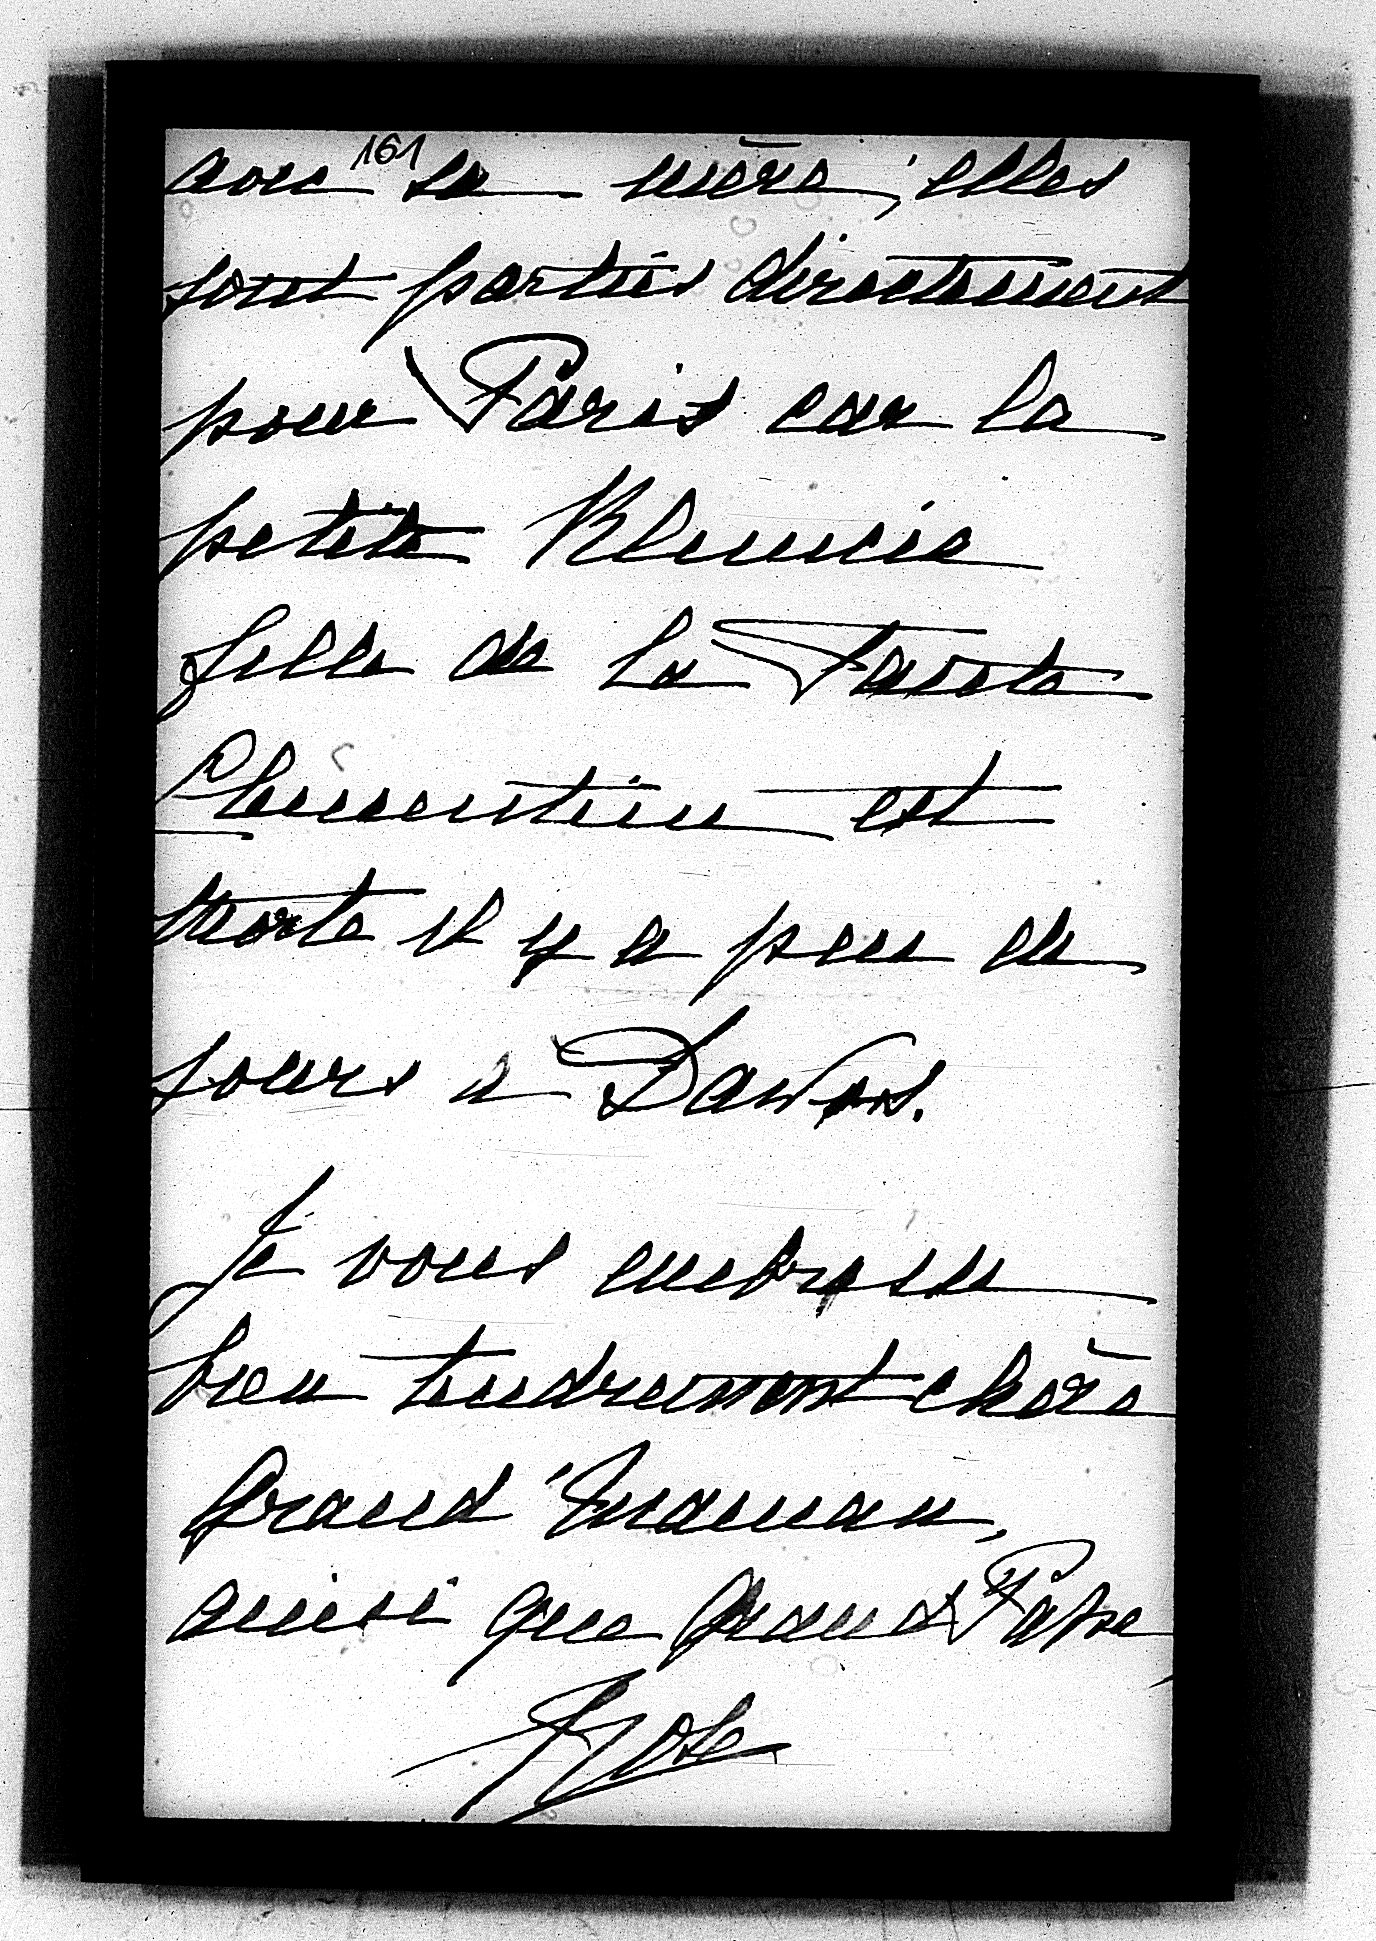 161
avec sa mère, elles
sont parties directement
pour Paris car la
petite
fille de la Tante
Clementine est
morte il y a peu de
jours à Davos.
Je vous embrasse
bien tendrement chère
Grand Maman,
ainsi que Grand Papa,
Rose